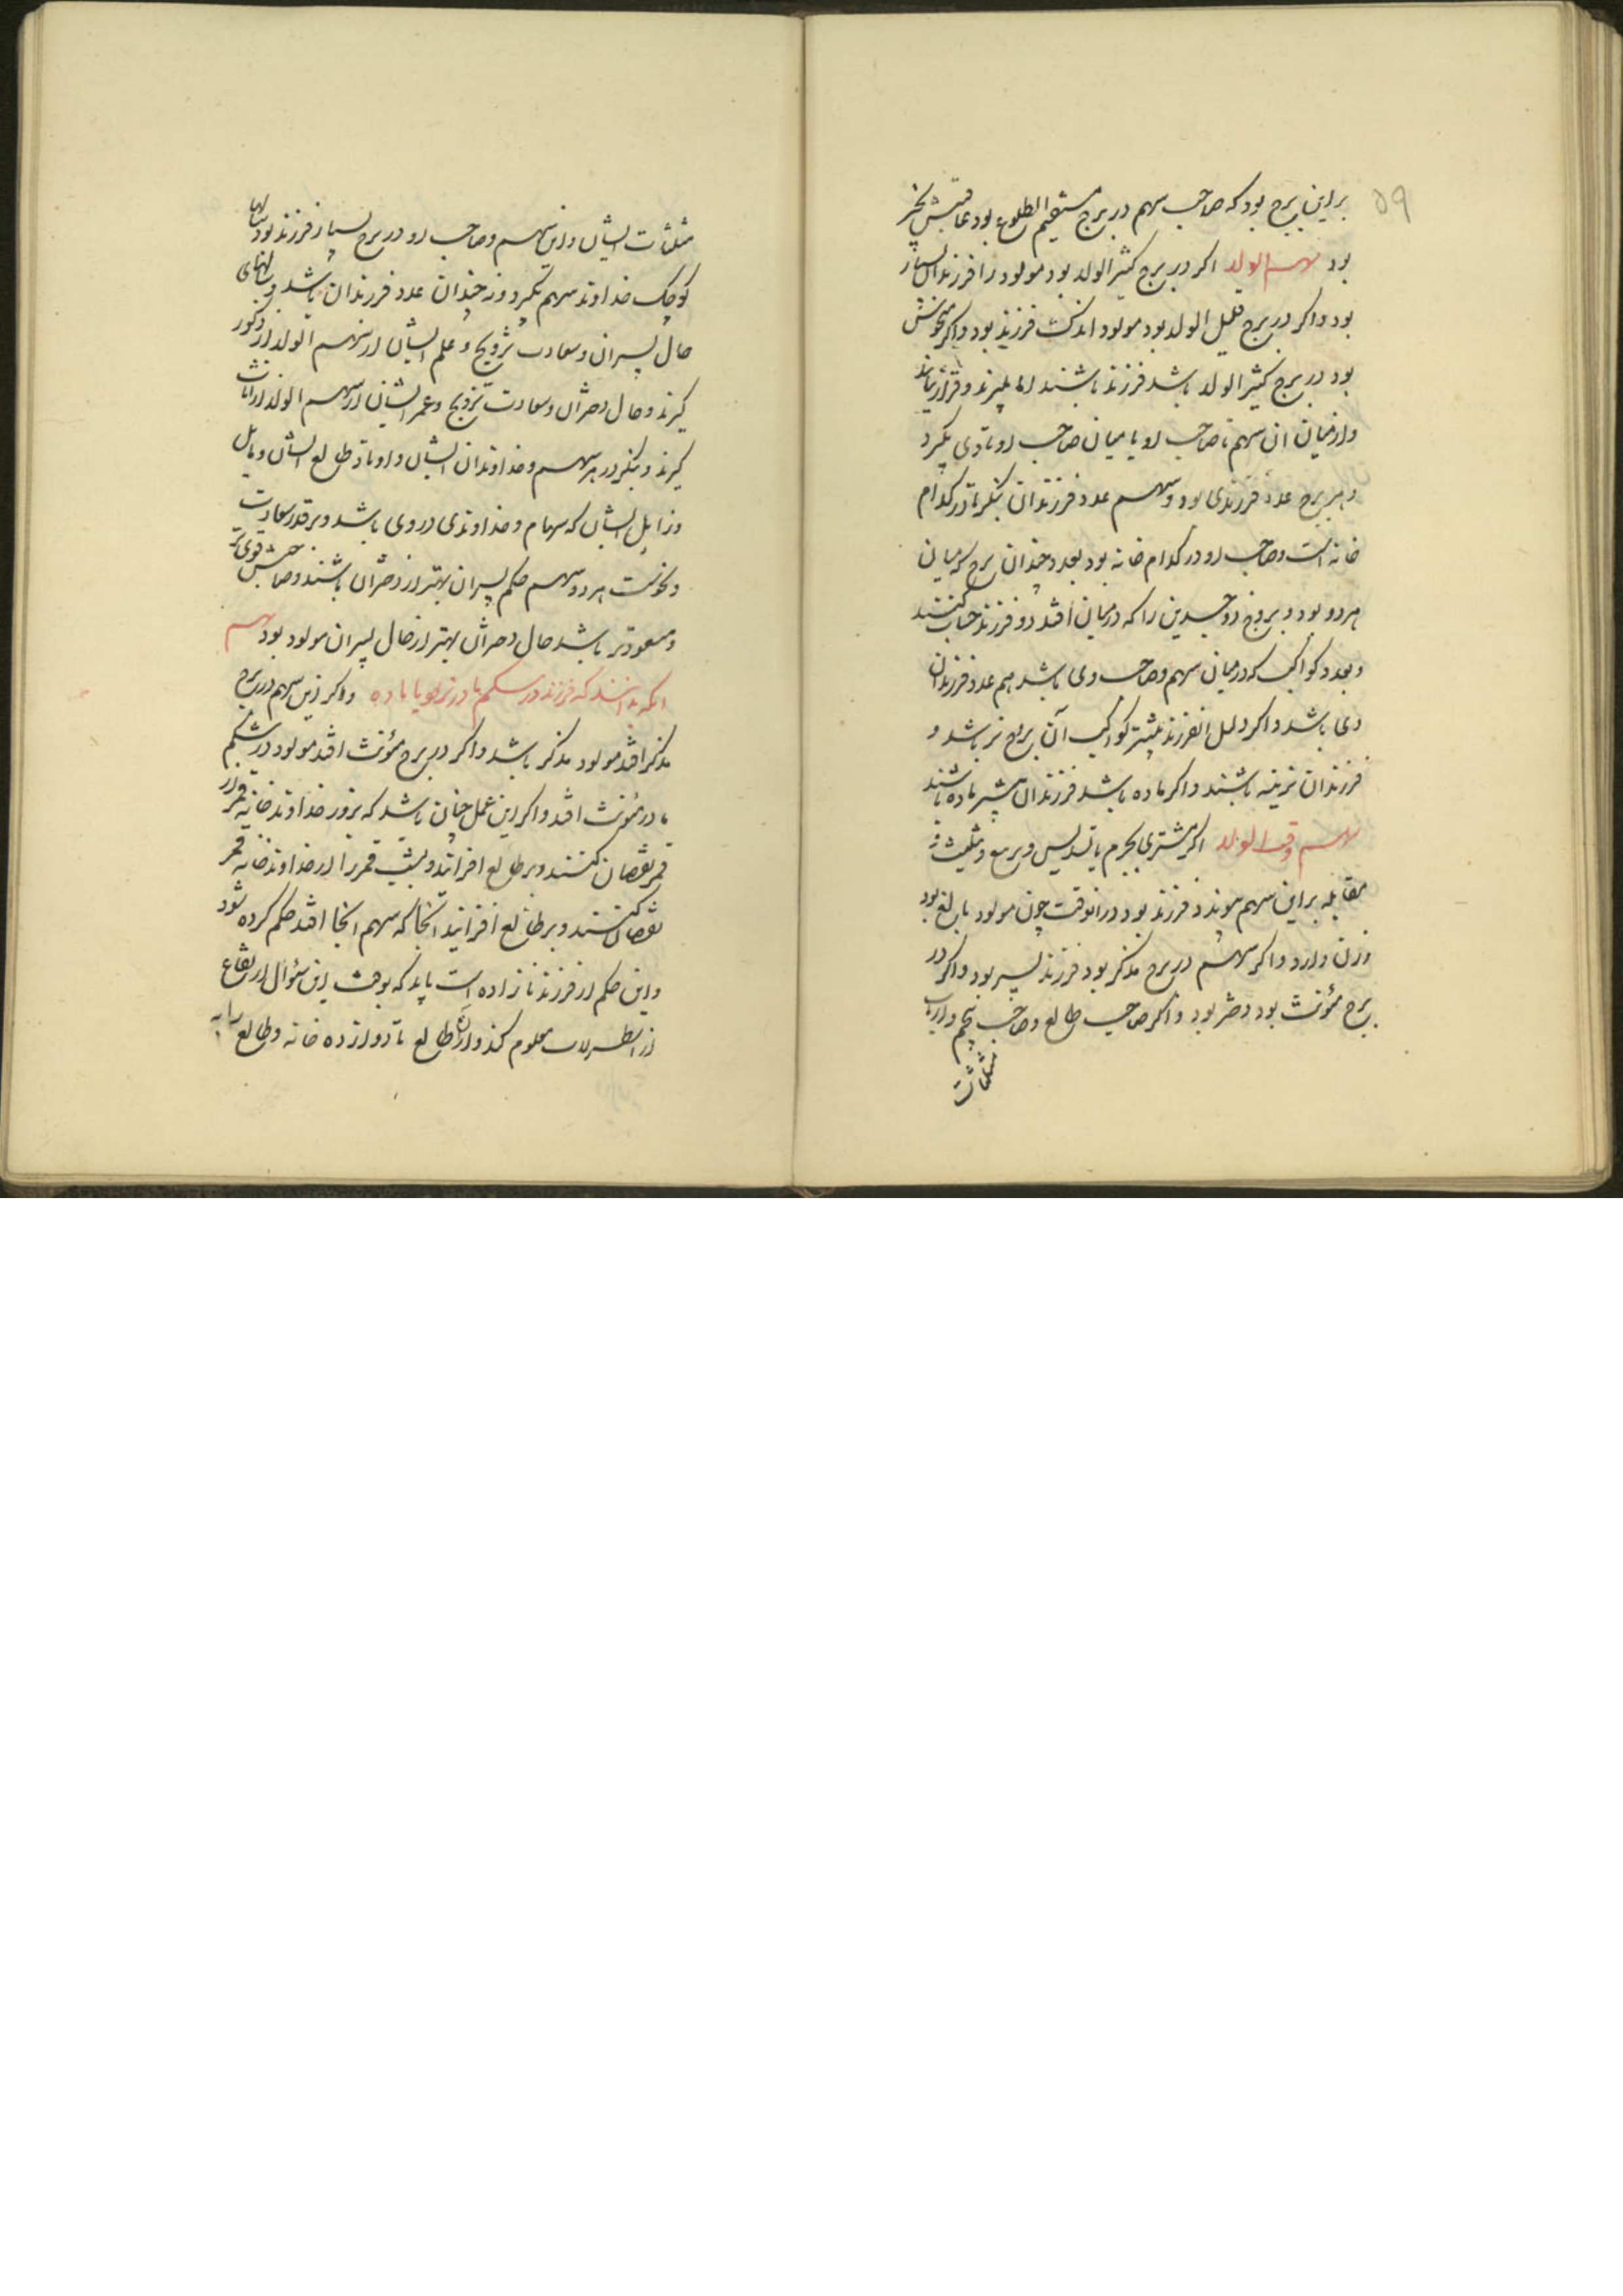 ۵۹
بر این برج بود که صاحب سهم در برج مستقیم الطلوع بود عاقبتش بخیر
بود سهم الولد اکر در برج کثیر الولد بود مولود را فرزندان بسیار
بود و اکر در برج قلیل الولد بود مولود اندک فرزند بود و اکر منحوش
بود در برج کثیر الولد باشد فرزند باشند اما بمیرند و قرار نیابند
و از میان ان سهم تا صاحب او یا میان صاحب او تا وی بکیرد
و هر برج عدد فرزندی بود و سهم عدد فرزندان بنکرد تا در کدام
خانه است و صاحب او در کدام خانه بود بعدد چندان برج که میان
هر دو بود و بروج ذوجسدین را که در میان افتد دو فرزند حساب کنند
و بعدد کواکب که در میان سهم و صاحب وی باشد هم عدد فرزندان
وی باشد و اکر دلیل ان فرزند بیشتر کواکب آن بروج نر باشد و
فرزندان نرینه باشند و اکر ماده باشد فرزندان بیشتر ماده باشند
سهم وقت الولد اکر مشتری بجرم یا تسدیس و تربیع و تثلیث و
مقابله بر این سهم پیوندد فرزند بود در انوقت چون مولود بالغ بود
و زن دارد و اکر سهم در برج مذکر بود فرزند پسر بود و اکر در
برج مؤنث بود دختر بود و اکر صاحب طالع و صاحب پنجم و ارباب
مثلثات
مثلثات ایشان و این سهم و صاحب او در برج بسیار فرزند بود سالها
کوچک خداوند سهم بکیرد و نه چندان عدد فرزندان باشد و سالهای
حال پسران و سعادت تزویج و علم ایشان از سهم الولد از ذکور
کیرند و حال دختران و سعادت تزویج و عمر ایشان از سهم الولد از اناث
کیرند و بنکر در هر سهم و خداوندان ایشان و اوتاد طالع ایشان و مایل
و زایل ایشان که سهام و خداوندی در وی باشد و بر قدر سعادت
و نحوست هر دو سهم حکم پسران بهتر از دختران باشند و صاحبش قوی تر
و مسعودتر باشد حال دختران بهتر از حال پسران مولود بود سهم
انکه بدانند که فرزند در شکم مادر نر بود یا ماده و اکر این سهم در برج
مذکر افتد مولود مذکر باشد و اکر در برج مؤنث افتد مولود در شکم
مادر مؤنث افتد و اکر این عمل چنان باشد که بروز خداوند خانه قمر از
قمر نقصان کنند و بر طالع افزایند و بشب قمر را از خداوند خانه قمر
نقصان کنند و بر طالع افزایند انجا که سهم انجا افتد حکم کرده شود
و این حکم از فرزند نازاده است باید که بوقت این سؤال ارتفاع
از اسطرلاب معلوم کند و از انجا طالع تا دوازده خانه و طالع